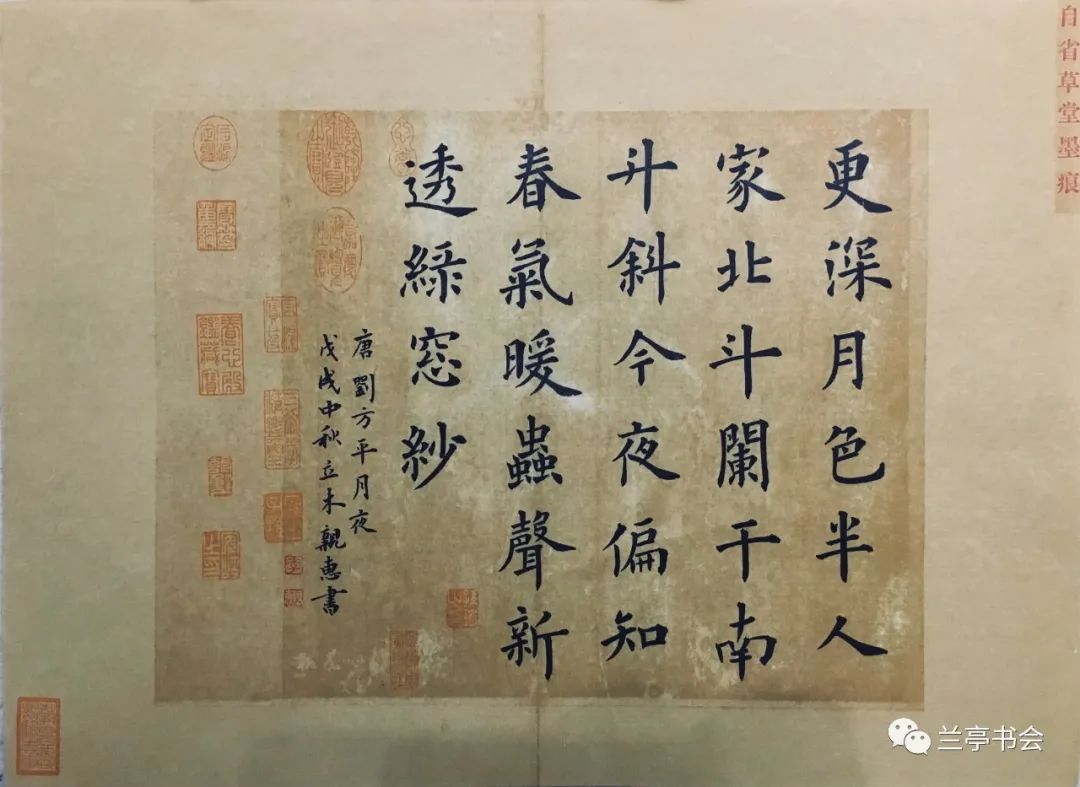 自省草堂墨痕
更深月色半人
家北斗闌干南
斗斜今夜偏知
春氣暖蟲聲新
透綠窓紗
唐劉方平月夜
戊戌中秋立木親惠書
兰亭书会